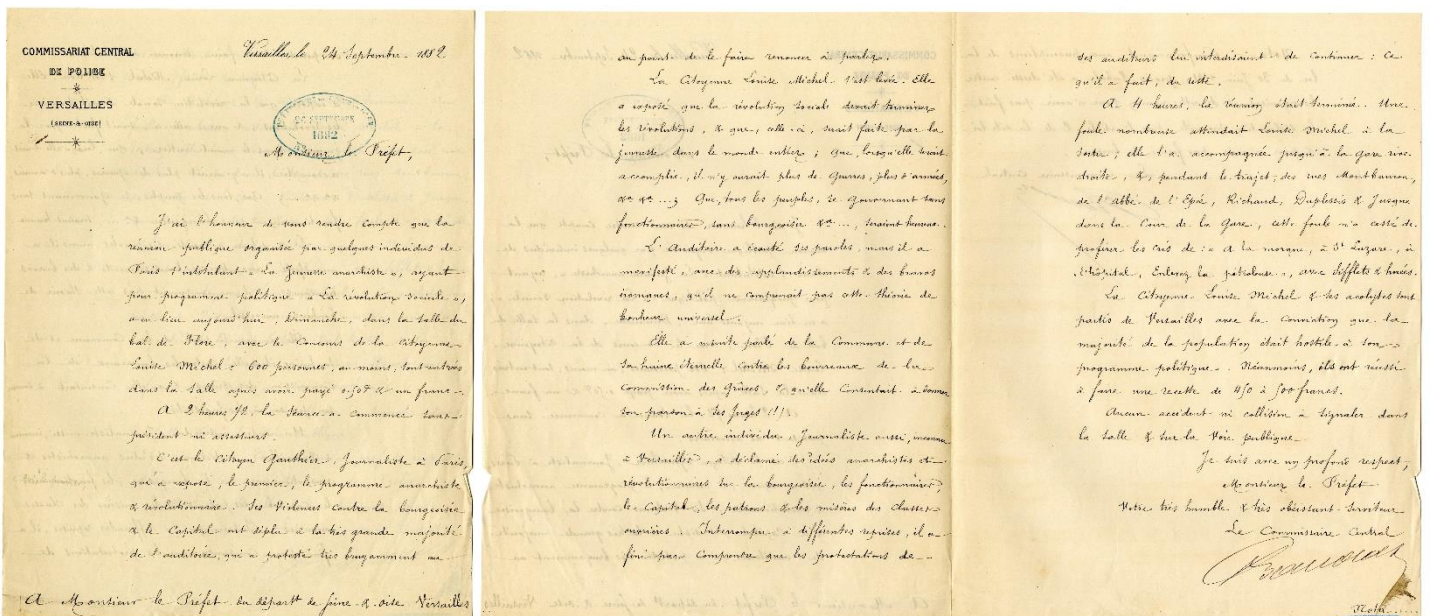 COMMISSARIAT CENTRAL
DE POLICE
VERSAILLES
(SEINE-&-OISE)
Versailles, le 24 Septembre 1882
27 SEPTEMBRE
1882
Monsieur le Préfet,
J'ai l'honneur de vous rendre compte que la
réunion publique organisée par quelques individus de
Paris s'intitulant « La Jeunesse anarchiste », ayant
pour programme politique « La révolution sociale »,
a eu lieu aujourd'hui, Dimanche, dans la salle du
bal de Flore, avec le Concours de la Citoyenne
Louise Michel : 600 personnes, au moins, sont entrées
dans la salle après avoir payé 0.50c & un franc.
A 2 heures 1/2, la Séance a commencé sans
président ni assesseurs.
C'est le Citoyen Gauthier, Journaliste à Paris,
qui a exposé, le premier, le programme anarchiste
& révolutionnaire. Ses Violences contre la bourgeoisie
& le Capital ont déplu à la très grande majorité
de l'auditoire, qui a protesté très bruyamment au
A Monsieur le Préfet du départt de Seine & Oise Versailles
au point de le faire renoncer à parler.
La Citoyenne Louise Michel s'est levée. Elle
a exposé que la révolution sociale devait terminer
les révolutions, & que, celle-ci, serait faite par la
jeunesse dans le monde entier ; que, lorsqu'elle serait
accomplie, il n'y aurait plus de guerres, plus d'armées,
&a &a ... ; Que, tous les peuples, se gouvernant sans
fonctionnaires, sans bourgeoisie &a ..., seraient heureux.
L'Auditoire a écouté ses paroles, mais il a
manifesté, avec des applaudissements & des bravos
ironiques, qu'il ne comprenait pas cette théorie de
bonheur universel.
Elle a ensuite parlé de la Commune et de
sa haine éternelle contre les bourreaux de la
Commission des Grâces, & qu'elle Consentait à donner
son pardon à ses Juges !!!
Un autre individu, Journaliste aussi, inconnu
à Versailles, a déclamé des idées anarchistes et
révolutionnaires sur la bourgeoisie, les fonctionnaires,
le Capital, les patrons & les misères des classes
ouvrières. Interrompu à différentes reprises, il a
fini par Comprendre que les protestations de
ses auditeurs lui interdisaient de continuer : Ce
qu'il a fait, du reste.
A 4 heures, la réunion était terminée. Une
foule nombreuse attendait Louise Michel à la
sortie ; elle l'a accompagnée jusqu'à la gare rive
droite, &, pendant le trajet, des rues Montbauron,
de l'abbé de l'Epée, Richaud, Duplessis & Jusque
dans la Cour de la Gare, cette foule n'a cessé de
proférer les cris de : « A la morgue, à St Lazare, à
l'hôpital, Enlevez la pétroleuse », avec Sifflets & huées.
La Citoyenne Louise Michel & ses acolytes sont
partis de Versailles avec la Conviction que la
majorité de la population était hostile à son
programme politique. Néanmoins, ils ont réussi
à faire une recette de 450 à 500 francs.
Aucun accident ni collision à signaler dans
la salle & sur la Voie publique.
Je suis avec un profond respect,
Monsieur le Préfet
Votre très humble & très obéissant serviteur
Le Commissaire Central